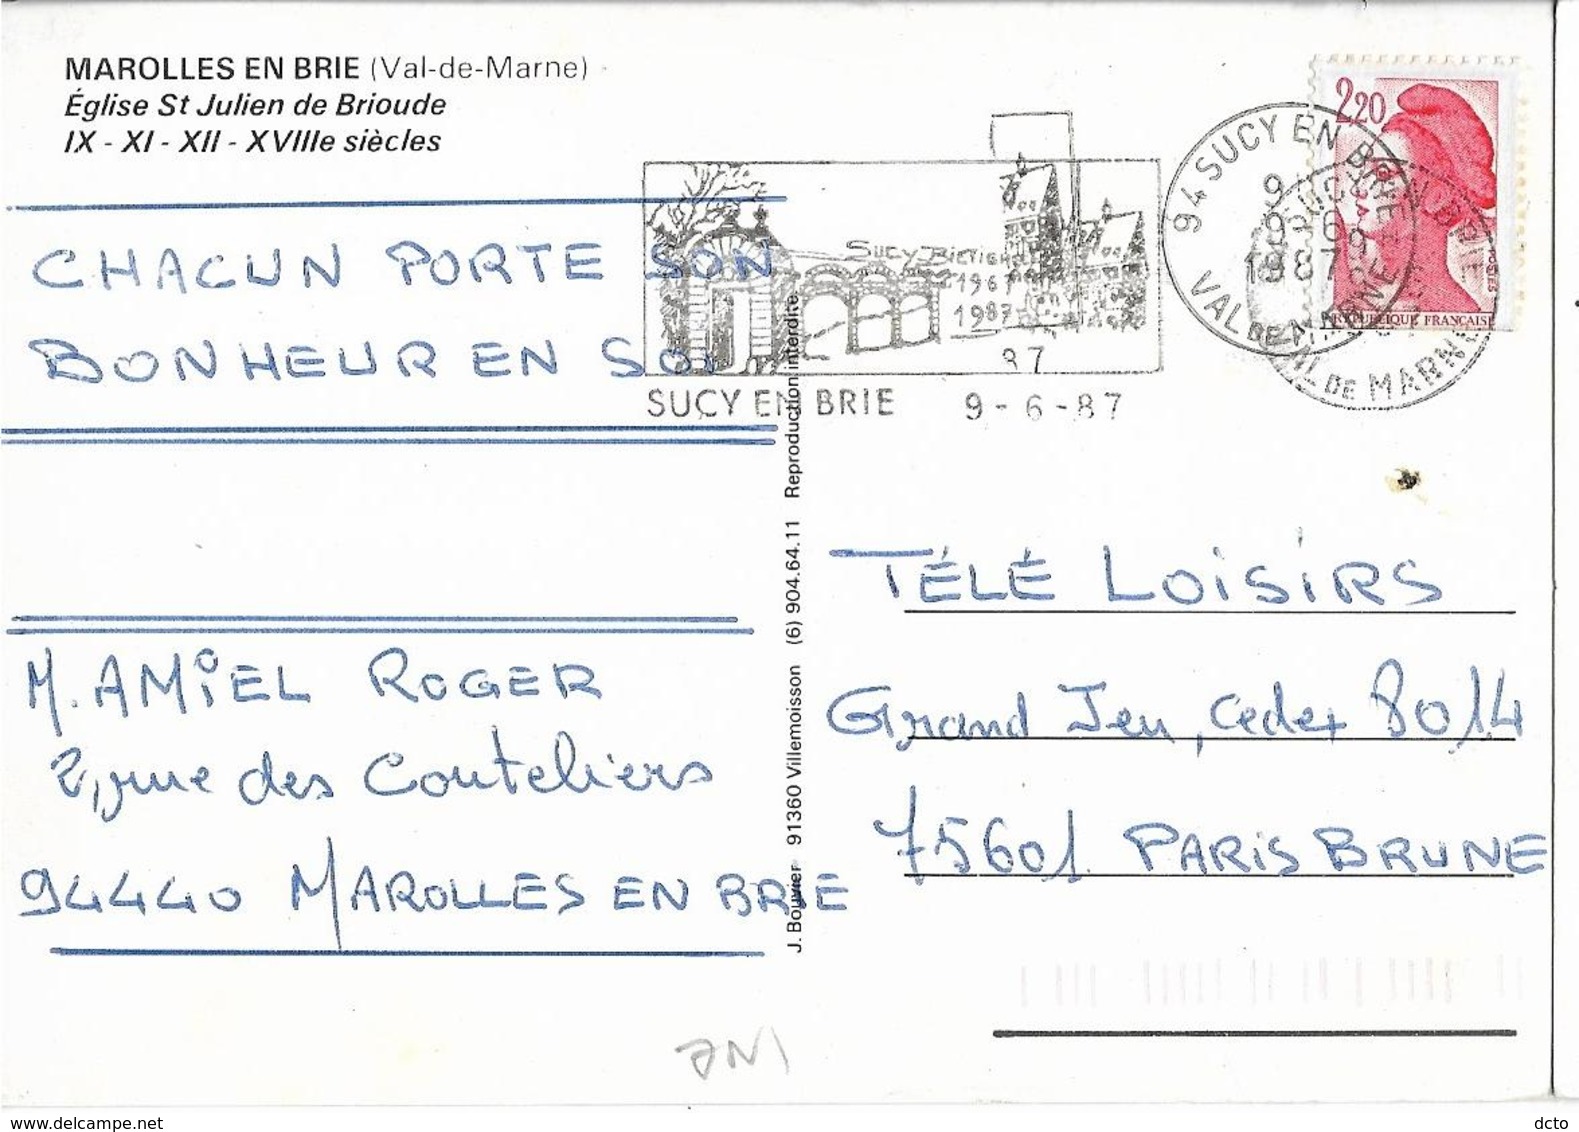 MAROLLES EN BRIE (Val-de-Marne)
Église St Julien de Brioude
IX - XI - XII - XVIIIe siècles
CHACUN PORTE SON
BONHEUR EN SOI
M. AMIEL ROGER
2, rue des Couteliers
94440 MAROLLES EN BRIE
J. Bouvier 91360 Villemoisson (6) 904.64.11 Reproduction interdite
SUCY
1967
1987
87
SUCY EN BRIE 9-6-87
94 SUCY EN BRIE
9
1987
VAL DE MARNE
VAL DE MARNE
2,20
RÉPUBLIQUE FRANÇAISE
TÉLÉ LOISIRS
Grand Jeu, Cedex 8014
75601 PARIS BRUNE
www.delcampe.net
dcto